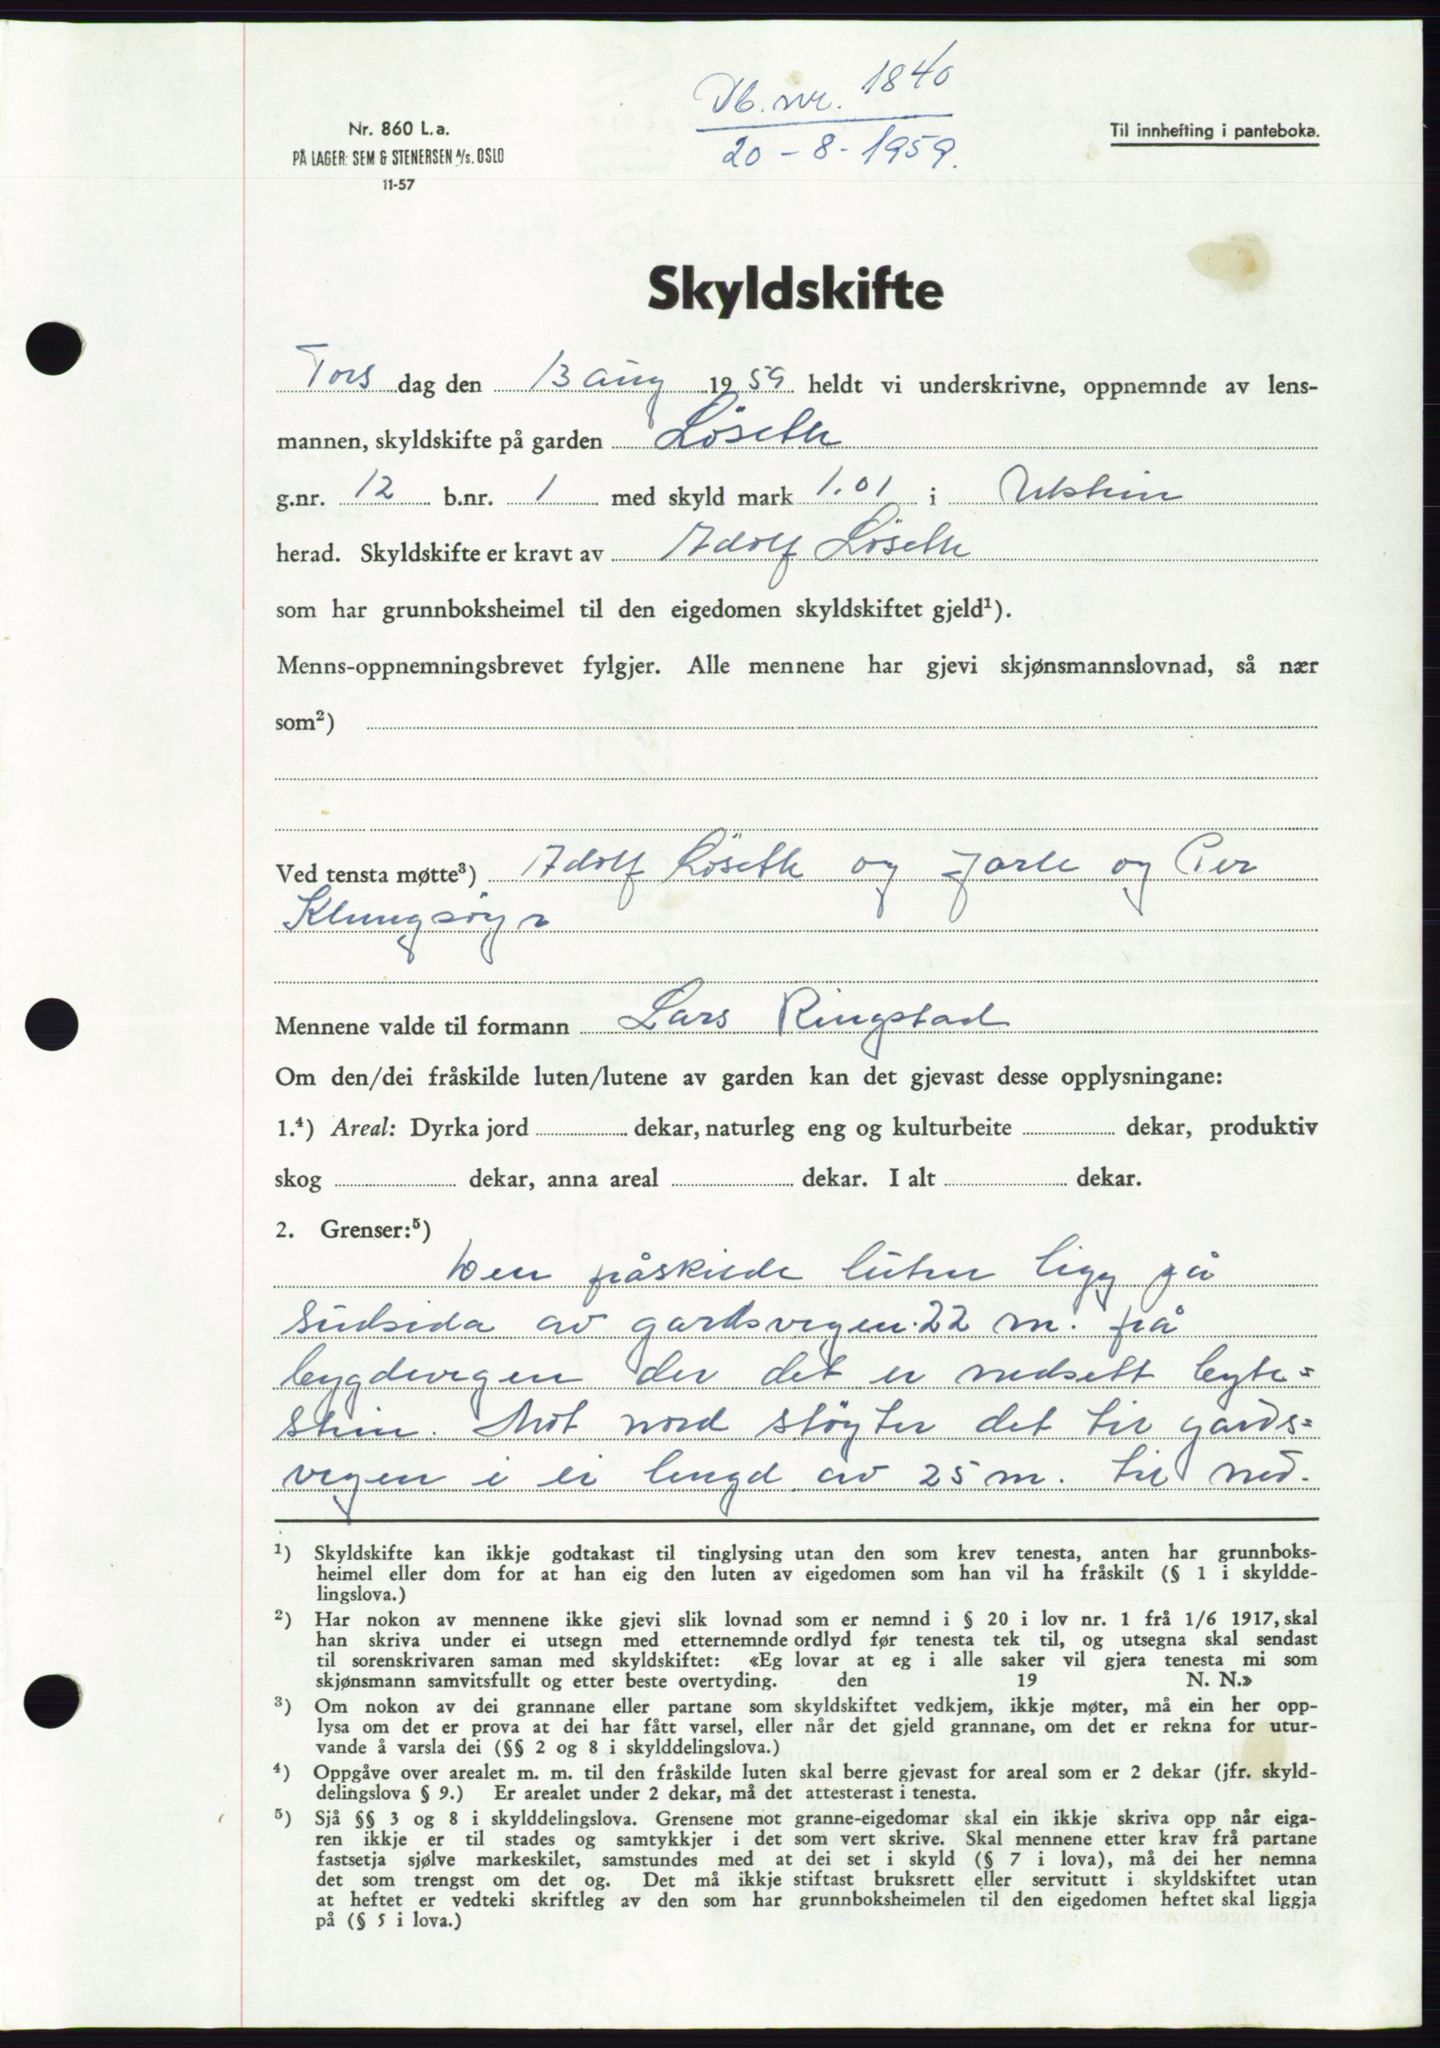 Db. nr. 1840
20-8-1959.
Nr. 860 L.a.
PÅ LAGER: SEM & STENERSEN A/S. OSLO
11-57
Til innhefting i panteboka.
Skyldskifte
Tors dag den 13 aug 1959 heldt vi underskrivne, oppnemnde av lens-
mannen, skyldskifte på garden Löseth
g.nr. 12 b.nr. 1 med skyld mark 1.01 i Ulstein
herad. Skyldskifte er kravt av Adolf Löseth
som har grunnboksheimel til den eigedomen skyldskiftet gjeld¹).
Menns-oppnemningsbrevet fylgjer. Alle mennene har gjevi skjønsmannslovnad, så nær
som²)
Ved tensta møtte³) Adolf Löseth og Jarle og Per
Klungsöyr
Mennene valde til formann Lars Ringstad
Om den/dei fråskilde luten/lutene av garden kan det gjevast desse opplysningane:
1.⁴) Areal: Dyrka jord dekar, naturleg eng og kulturbeite dekar, produktiv
skog dekar, anna areal dekar. I alt dekar.
2. Grenser:⁵)
Den fråskilde luten ligg på
sudsida av gardsvegen 22 m. frå
bygdevegen der det er nedsett byte=
stein. Mot nord stöyter det til gards=
vegen i ei lengd av 25 m. til ned-
¹) Skyldskifte kan ikkje godtakast til tinglysing utan den som krev tenesta, anten har grunnboks-
heimel eller dom for at han eig den luten av eigedomen som han vil ha fråskilt (§ 1 i skyldde-
lingslova.)
²) Har nokon av mennene ikke gjevi slik lovnad som er nemnd i § 20 i lov nr. 1 frå 1/6 1917, skal
han skriva under ei utsegn med etternemnde ordlyd før tenesta tek til, og utsegna skal sendast
til sorenskrivaren saman med skyldskiftet: «Eg lovar at eg i alle saker vil gjera tenesta mi som
skjønsmann samvitsfullt og etter beste overtyding. den 19 N. N.»
³) Om nokon av dei grannane eller partane som skyldskiftet vedkjem, ikkje møter, må ein her opp-
lysa om det er prova at dei har fått varsel, eller når det gjeld grannane, om det er rekna for utur-
vande å varsla dei (§§ 2 og 8 i skylddelingslova.)
⁴) Oppgåve over arealet m. m. til den fråskilde luten skal berre gjevast for areal som er 2 dekar (jfr. skyld-
delingslova § 9.) Er arealet under 2 dekar, må det attesterast i tenesta.
⁵) Sjå §§ 3 og 8 i skylddelingslova. Grensene mot granne-eigedomar skal ein ikkje skriva opp når eiga-
ren ikkje er til stades og samtykkjer i det som vert skrive. Skal mennene etter krav frå partane
fastsetja sjølve markeskilet, samstundes med at dei set i skyld (§ 7 i lova), må dei her nemna
det som trengst om det og. Det må ikkje stiftast bruksrett eller servitutt i skyldskiftet utan
at heftet er vedteki skriftleg av den som har grunnboksheimelen til den eigedomen heftet skal liggja
på (§ 5 i lova.)